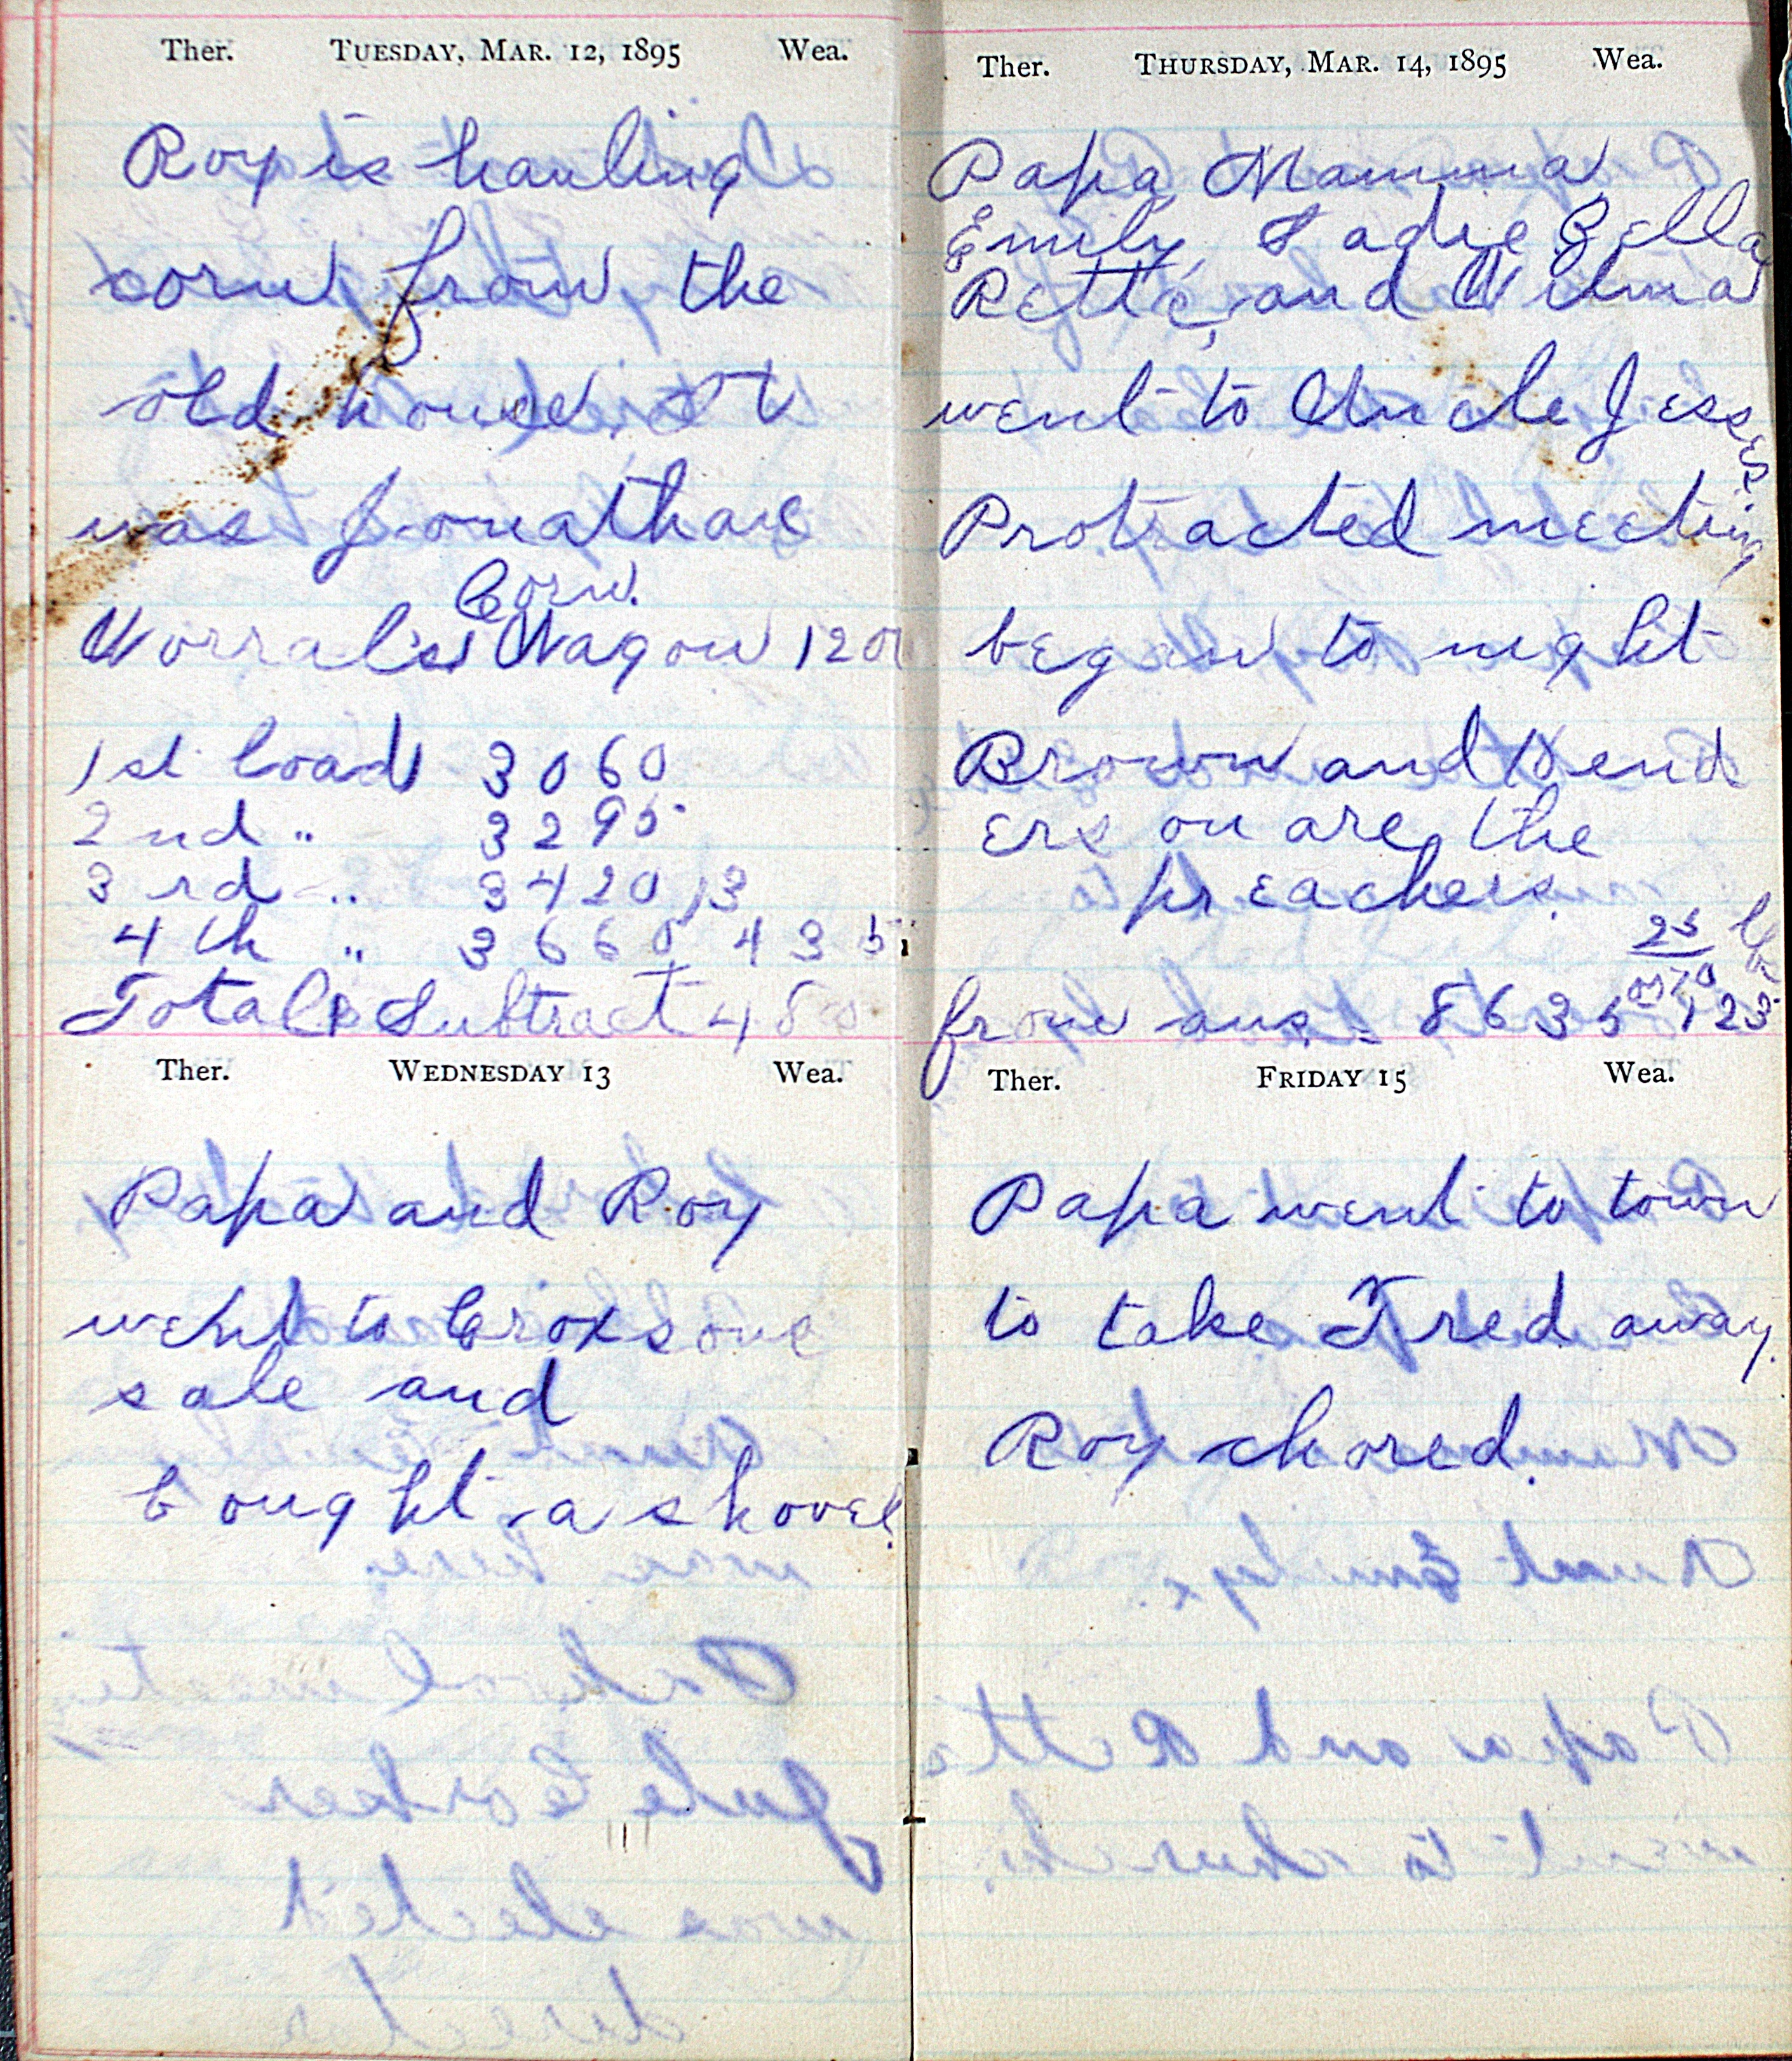 Ther. TUESDAY, MAR. 12, 1895 Wea.
Roy is hauling
corn from the
old house. It
was Jonathan
Corn.
Worral's Wagon 120
1st load 3060
2nd " 3295
3rd " 3420
4th " 3660 435
Total Subtract 48
Ther. WEDNESDAY 13 Wea.
Papa and Roy
went to Croxsons
sale and
bought a shovel.
Ther. THURSDAY, MAR. 14, 1895 Wea.
Papa Mamma
Emily Sadie Bella
Retta, and Wilma
went to Uncle Jesses
Protracted meeting
began to night
Brown and Hend
erson are the
preachers.
from ans. 8635 123
Ther. FRIDAY 15 Wea.
Papa went to town
to take Fred away.
Roy chored.